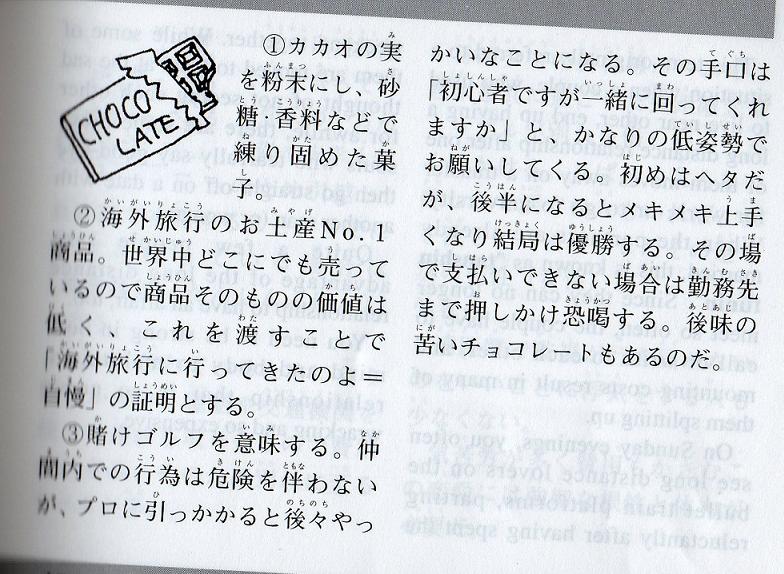 CHOCO
LATE
①カカオの実
を粉末にし、砂
糖・香料などで
練り固めた菓
子。
②海外旅行のお土産No.1
商品。世界中どこにでも売って
いるので商品そのものの価値は
低く、これを渡すことで
「海外旅行に行ってきたのよ＝
自慢」の証明とする。
③賭けゴルフを意味する。仲
間内での行為は危険を伴わない
が、プロに引っかかると後々やっ
かいなことになる。その手口は
「初心者ですが一緒に回ってくれ
ますか」と、かなりの低姿勢で
お願いしてくる。初めはヘタだ
が、後半になるとメキメキ上手
くなり結局は優勝する。その場
で支払いできない場合は勤務先
まで押しかけ恐喝する。後味の
苦いチョコレートもあるのだ。